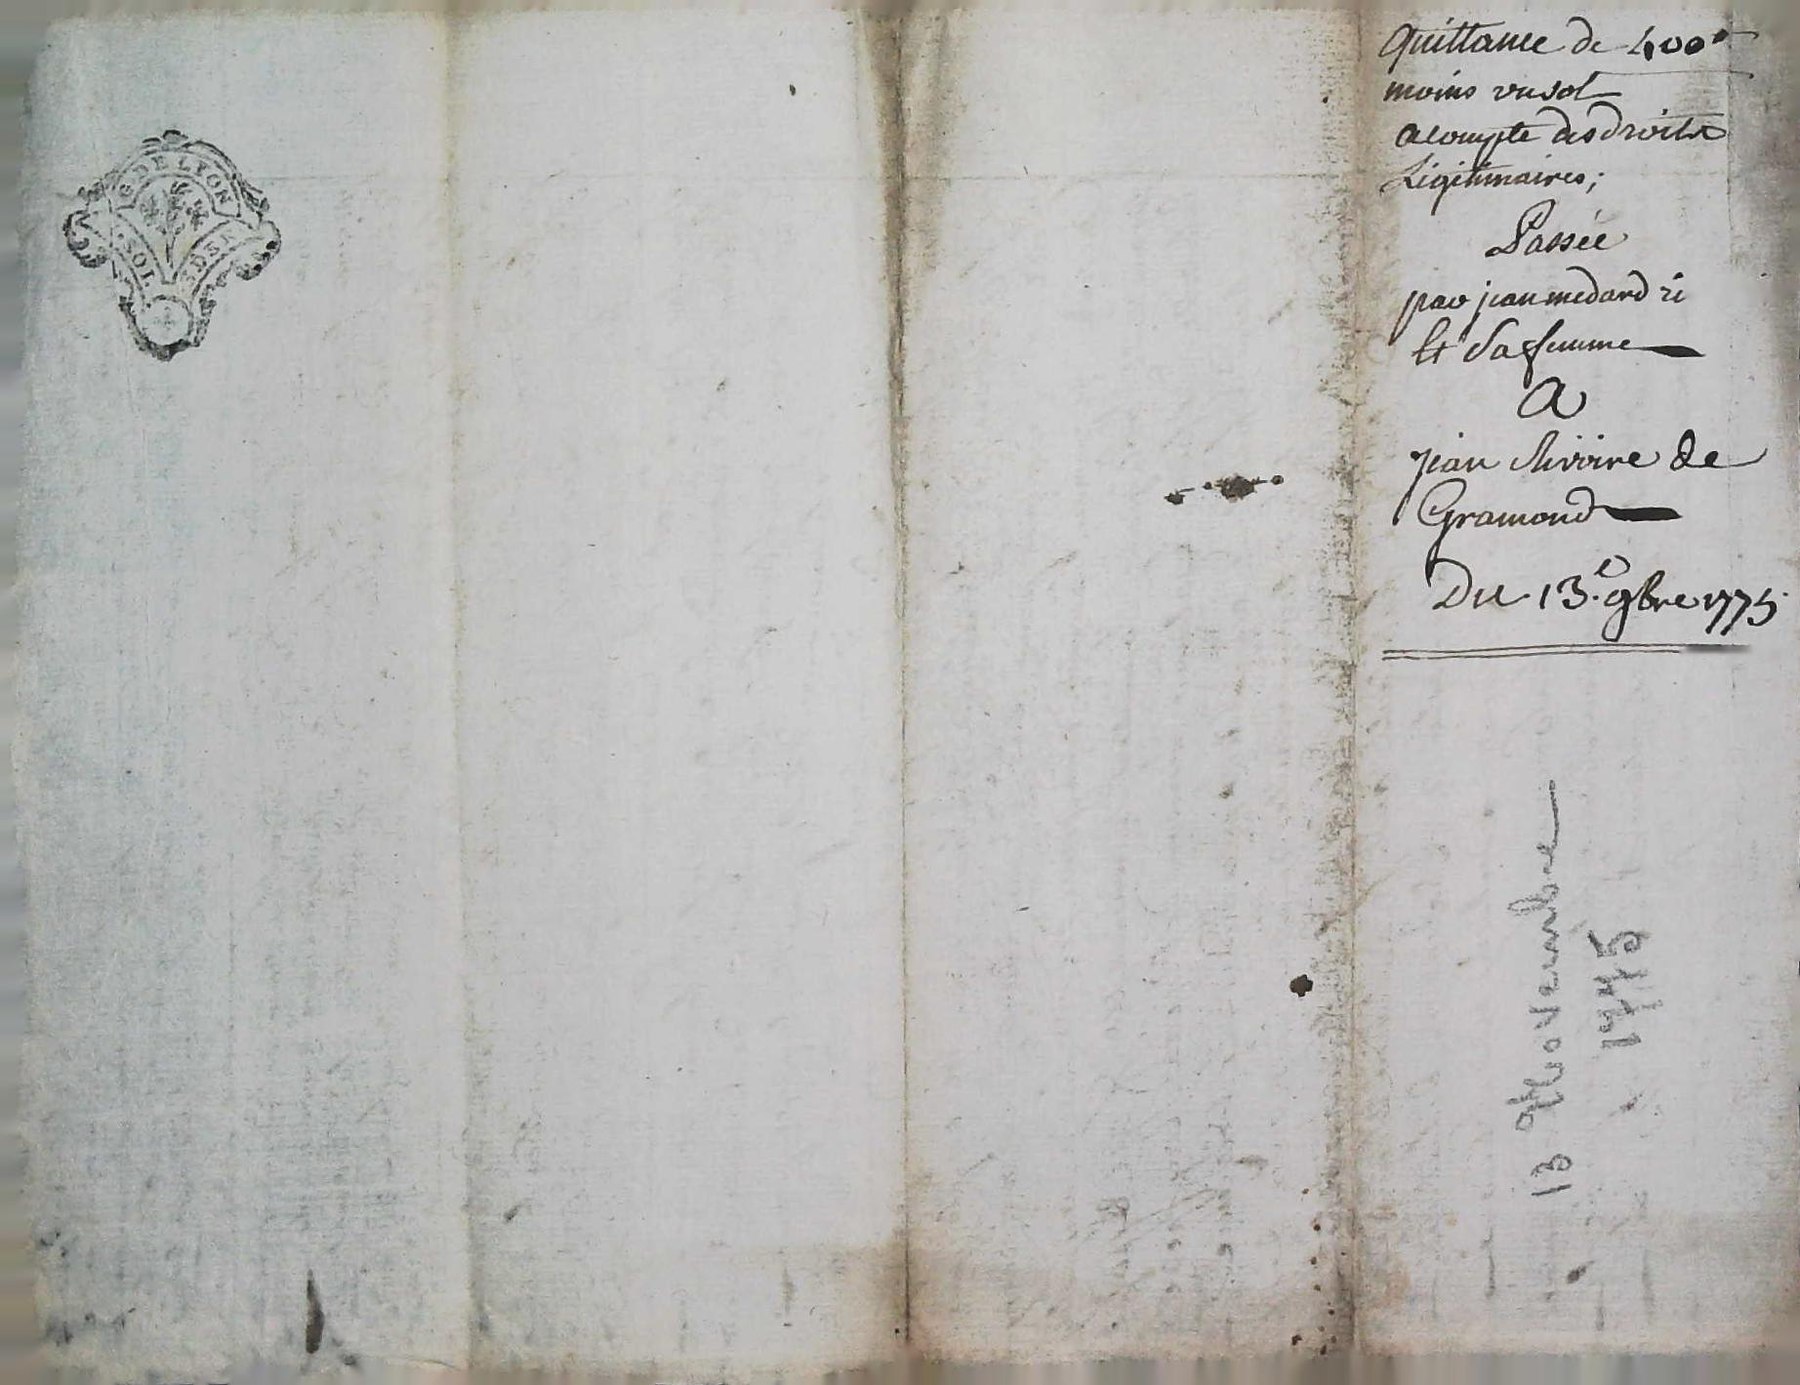 G. DE LYON
SOL
Quittance de 400#
moins un sol
acompte des droits
Legitimaires;
Passée
par jean medard
et Sa femme
A
jean de
Gramond
Du 13.e 9bre 1775.
13 Novembre
1775